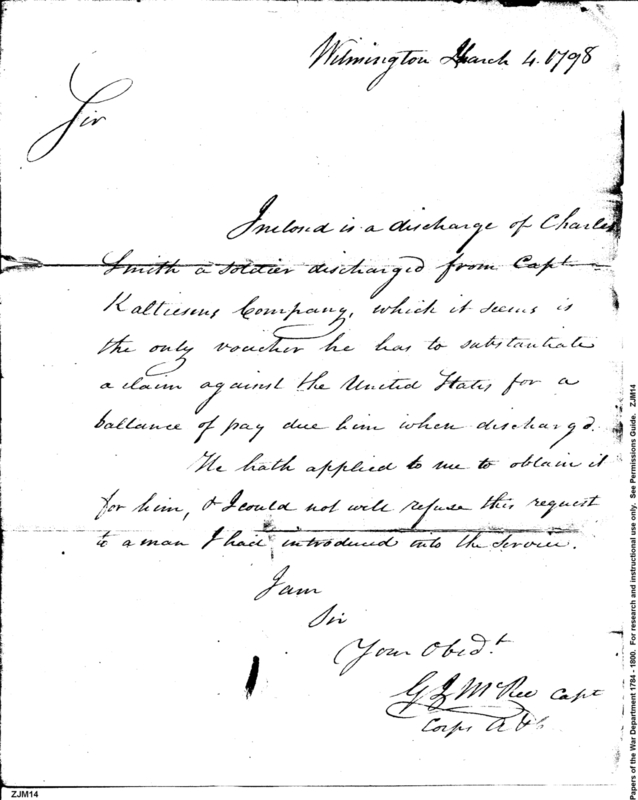 Wilmington March 4. 1798
Sir
Inclosed is a discharge of Charles
Smith a soldier discharged from Capt
Kalteisens Company, which it seems is
the only voucher he has to substantiate
a claim against the United States for a
ballance of pay due him when discharg'd.
He hath applied to me to obtain it
for him, & I could not well refuse this request
to a man I had introduced into the Service.
I am
Sir
Your Obedt
G J McRee Capt
Corps A & E
ZJM14
Papers of the War Department 1784 - 1800. For research and instructional use only. See Permissions Guide. ZJM14